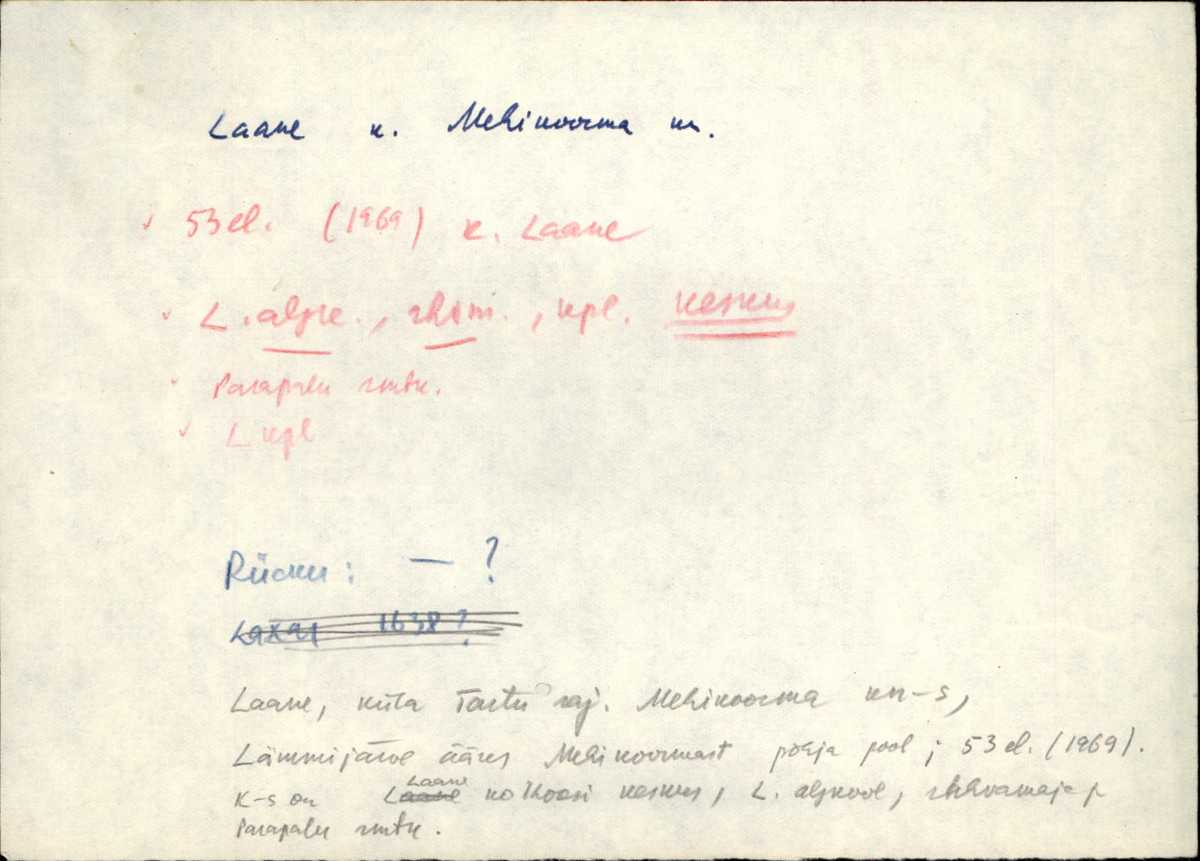 Laane k. Mehikoorma kn.
✓ 53 el. (1969) k. Laane
✓ L. algk., rhvm., kpl. keskus
✓ Parapalu rmtk.
✓ L kpl
Rücku: — ?
1638?
Laane, küla Tartu raj. Mehikoorma kn-s,
Lämmijärve ääres Mehikoormast põhja pool; 53 el. (1969).
K-s on Laane kolhoosi keskus, L. algkool, rahvamaja,
Parapalu rmtk.